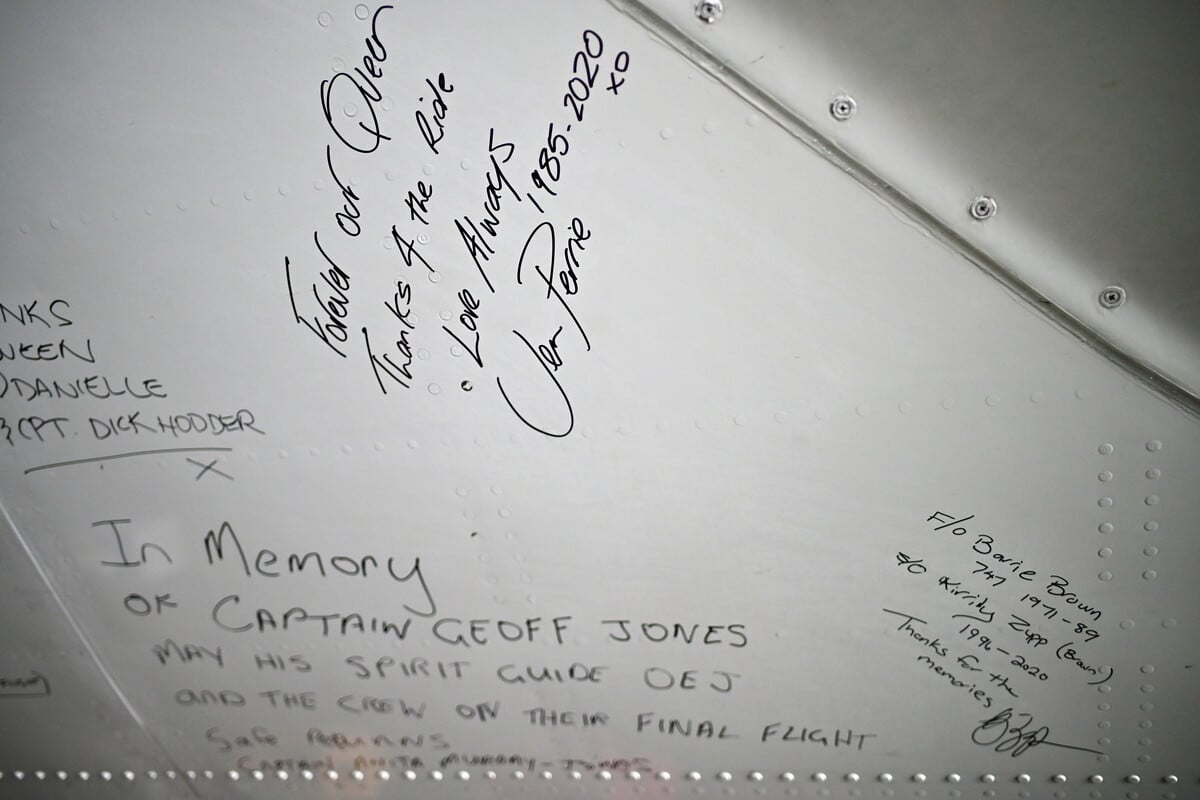 Forever our Queen
Thanks 4 the Ride
Love Always
Jen Perrie 1985-2020
xo
NKS
DANIELLE
CPT. DICK HODDER
X
In Memory
OF CAPTAIN GEOFF JONES
MAY HIS SPIRIT GUIDE OEJ
AND THE CREW ON THEIR FINAL FLIGHT
Safe RETURNS
CAPTAIN
F/O Barrie Brown
747 1971-89
S/O Kirrily Zupp (Brown)
1996-2020
Thanks for the
memories